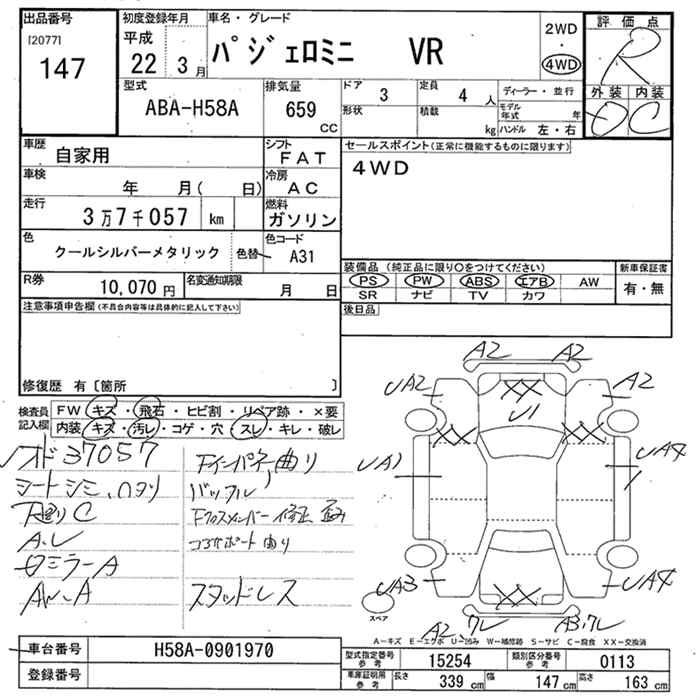 出品番号
[2077]
147
初度登録年月
平成
22 3月
車名・グレード
パジェロミニ VR
2WD
・
4WD
評価点
R
外装 内装
D C
型式
ABA-H58A
排気量
659
CC
ドア 3
形状
定員 4 人
積載 kg
ディーラー・並行
モデル
年式 年
ハンドル 左・右
車歴
自家用
シフト
FAT
セールスポイント(正常に機能するものに限ります)
4WD
車検
年 月( 日)
冷房
AC
走行
3万7千057 km
燃料
ガソリン
色
クールシルバーメタリック
色替
色コード
A31
R券
10,070 円
名変通知期限
月 日
装備品 (純正品に限り○をつけてください)
PS PW ABS エアB AW
SR ナビ TV カワ
新車保証書
有・無
注意事項申告欄(不具合内容等は具体的に記入して下さい)
後日品
修復歴 有〔箇所 〕
検査員
記入欄
FW キズ・飛石・ヒビ割・リペア跡・×要
内装 キズ・汚レ・コゲ・穴・スレ・キレ・破レ
37057
シートシミ、
下廻りC
曲り
バッフル
修正
コアサポート曲り
スタッドレス
A2 A2
UA2 A2
XX
U1
XX XX
UA1 UA4
UA3 UA4
XX
A2、ワレ A3、ワレ
スペア
A-キズ E-エクボ U-凹み W-補修跡 S-サビ C-腐食 XX-交換済
車台番号 H58A-0901970
登録番号
型式指定番号
参考
15254
類別区分番号
参考
0113
車庫証明用
参考
長さ 339 cm 幅 147 cm 高さ 163 cm